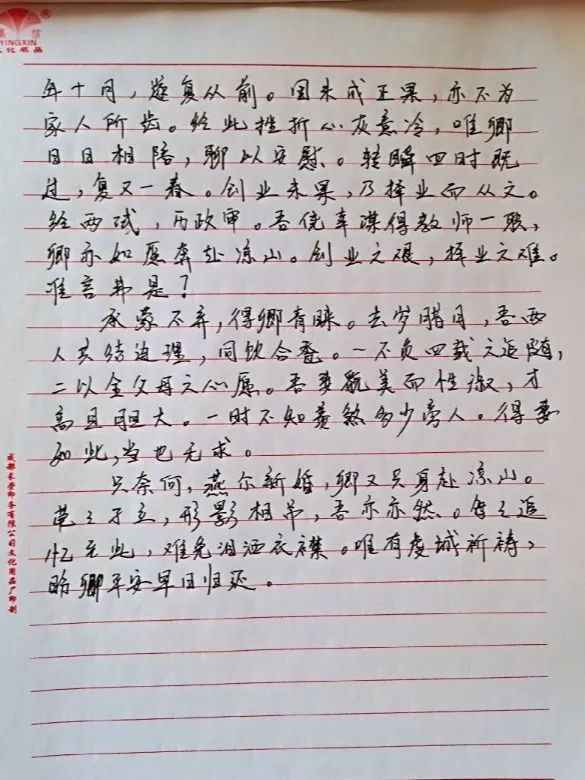 YINGXIN
年十月，遂复从前。因未成正果，亦不为
家人所齿。经此挫折心灰意冷，唯卿
日日相陪，聊以安慰。转瞬四时既
过，复又一春。创业未果，乃择业而从文。
经两试，历政审。吾侥幸谋得教师一职，
卿亦如愿奔赴凉山。创业之艰，择业之难。
谁言弗是？
承蒙不弃，得卿青睐。去岁腊月，吾两
人共结连理，同饮合卺。一不负四载之追随，
二以全父母之心愿。吾妻貌美而性淑，才
高且胆大。一时不知羡煞多少旁人。得妻
如此，当也无求。
只奈何，燕尔新婚，卿又只身赴凉山。
茕茕孑立，形影相吊，吾亦亦然。每每追
忆至此，难免泪洒衣襟。唯有虔诚祈祷，
盼卿平安早日归还。
成都长誉印务有限公司文化用品厂印制